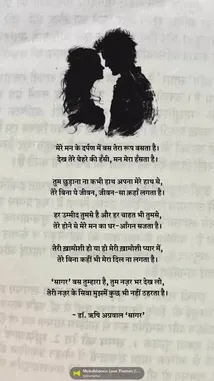 मेरे मन के दर्पण में बस तेरा रूप बसता है।
देख तेरे चेहर की हँसी, मन मेरा हँसता है।
तुम छुड़ाना ना कभी हाथ अपना मेरे हाथ से,
तेरे बिना ये जीवन, जीवन-सा कहाँ लगता है।
हर उम्मीद तुमसे है और हर चाहत भी तुमसे,
तेरे होने से मेरे मन का घर-आँगन सजता है।
तेरी ख़ामोशी हो या हो मेरी ख़ामोशी प्यार में,
तेरे बिन कहीं भी मेरा दिल ना लगता है।
'सागर' बस तुम्हारा है, तुम नज़र भर देख लो,
तेरी नज़र के सिवा मुझमें कुछ भी नहीं ठहरता है।
- डॉ. ऋषि अग्रवाल 'सागर'